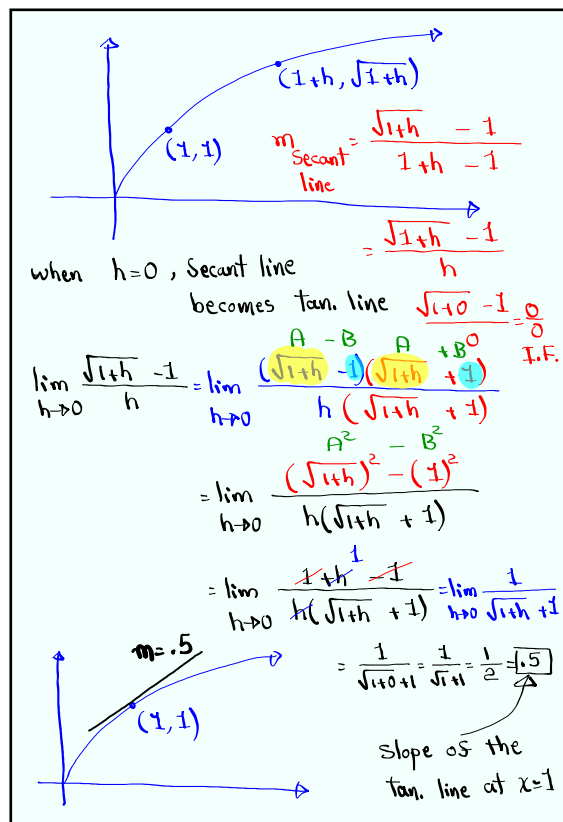 (1+h, √(1+h))
(1,1)
m Secant line = (√(1+h) - 1)/(1+h - 1)
= (√(1+h) - 1)/h
when h=0, Secant line
becomes tan. line (√(1+0) - 1)/0 = 0/0
I.F.
A - B A + B
lim h→0 (√(1+h) - 1)/h = lim h→0 (√(1+h) - 1)(√(1+h) + 1)/(h(√(1+h) + 1))
A² - B²
= lim h→0 ((√(1+h))² - (1)²)/(h(√(1+h) + 1))
= lim h→0 (1 + h - 1)/(h(√(1+h) + 1)) = lim h→0 1/(√(1+h) + 1)
1
= 1/(√(1+0)+1) = 1/(√1+1) = 1/2 = .5
m=.5
(1,1)
Slope of the
tan. line at x=1